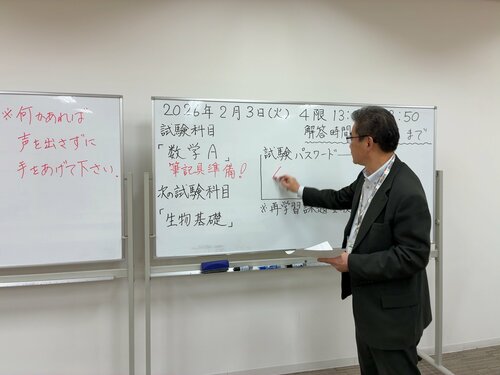 ※何かあれば
声を出さずに
手をあげて下さい.
2026年2月3日(火) 4限 13: :50
試験科目
解答時間 まで
「数学A」
試験パスワード
筆記具準備!
次の試験科目
※再学習課題
「生物基礎」